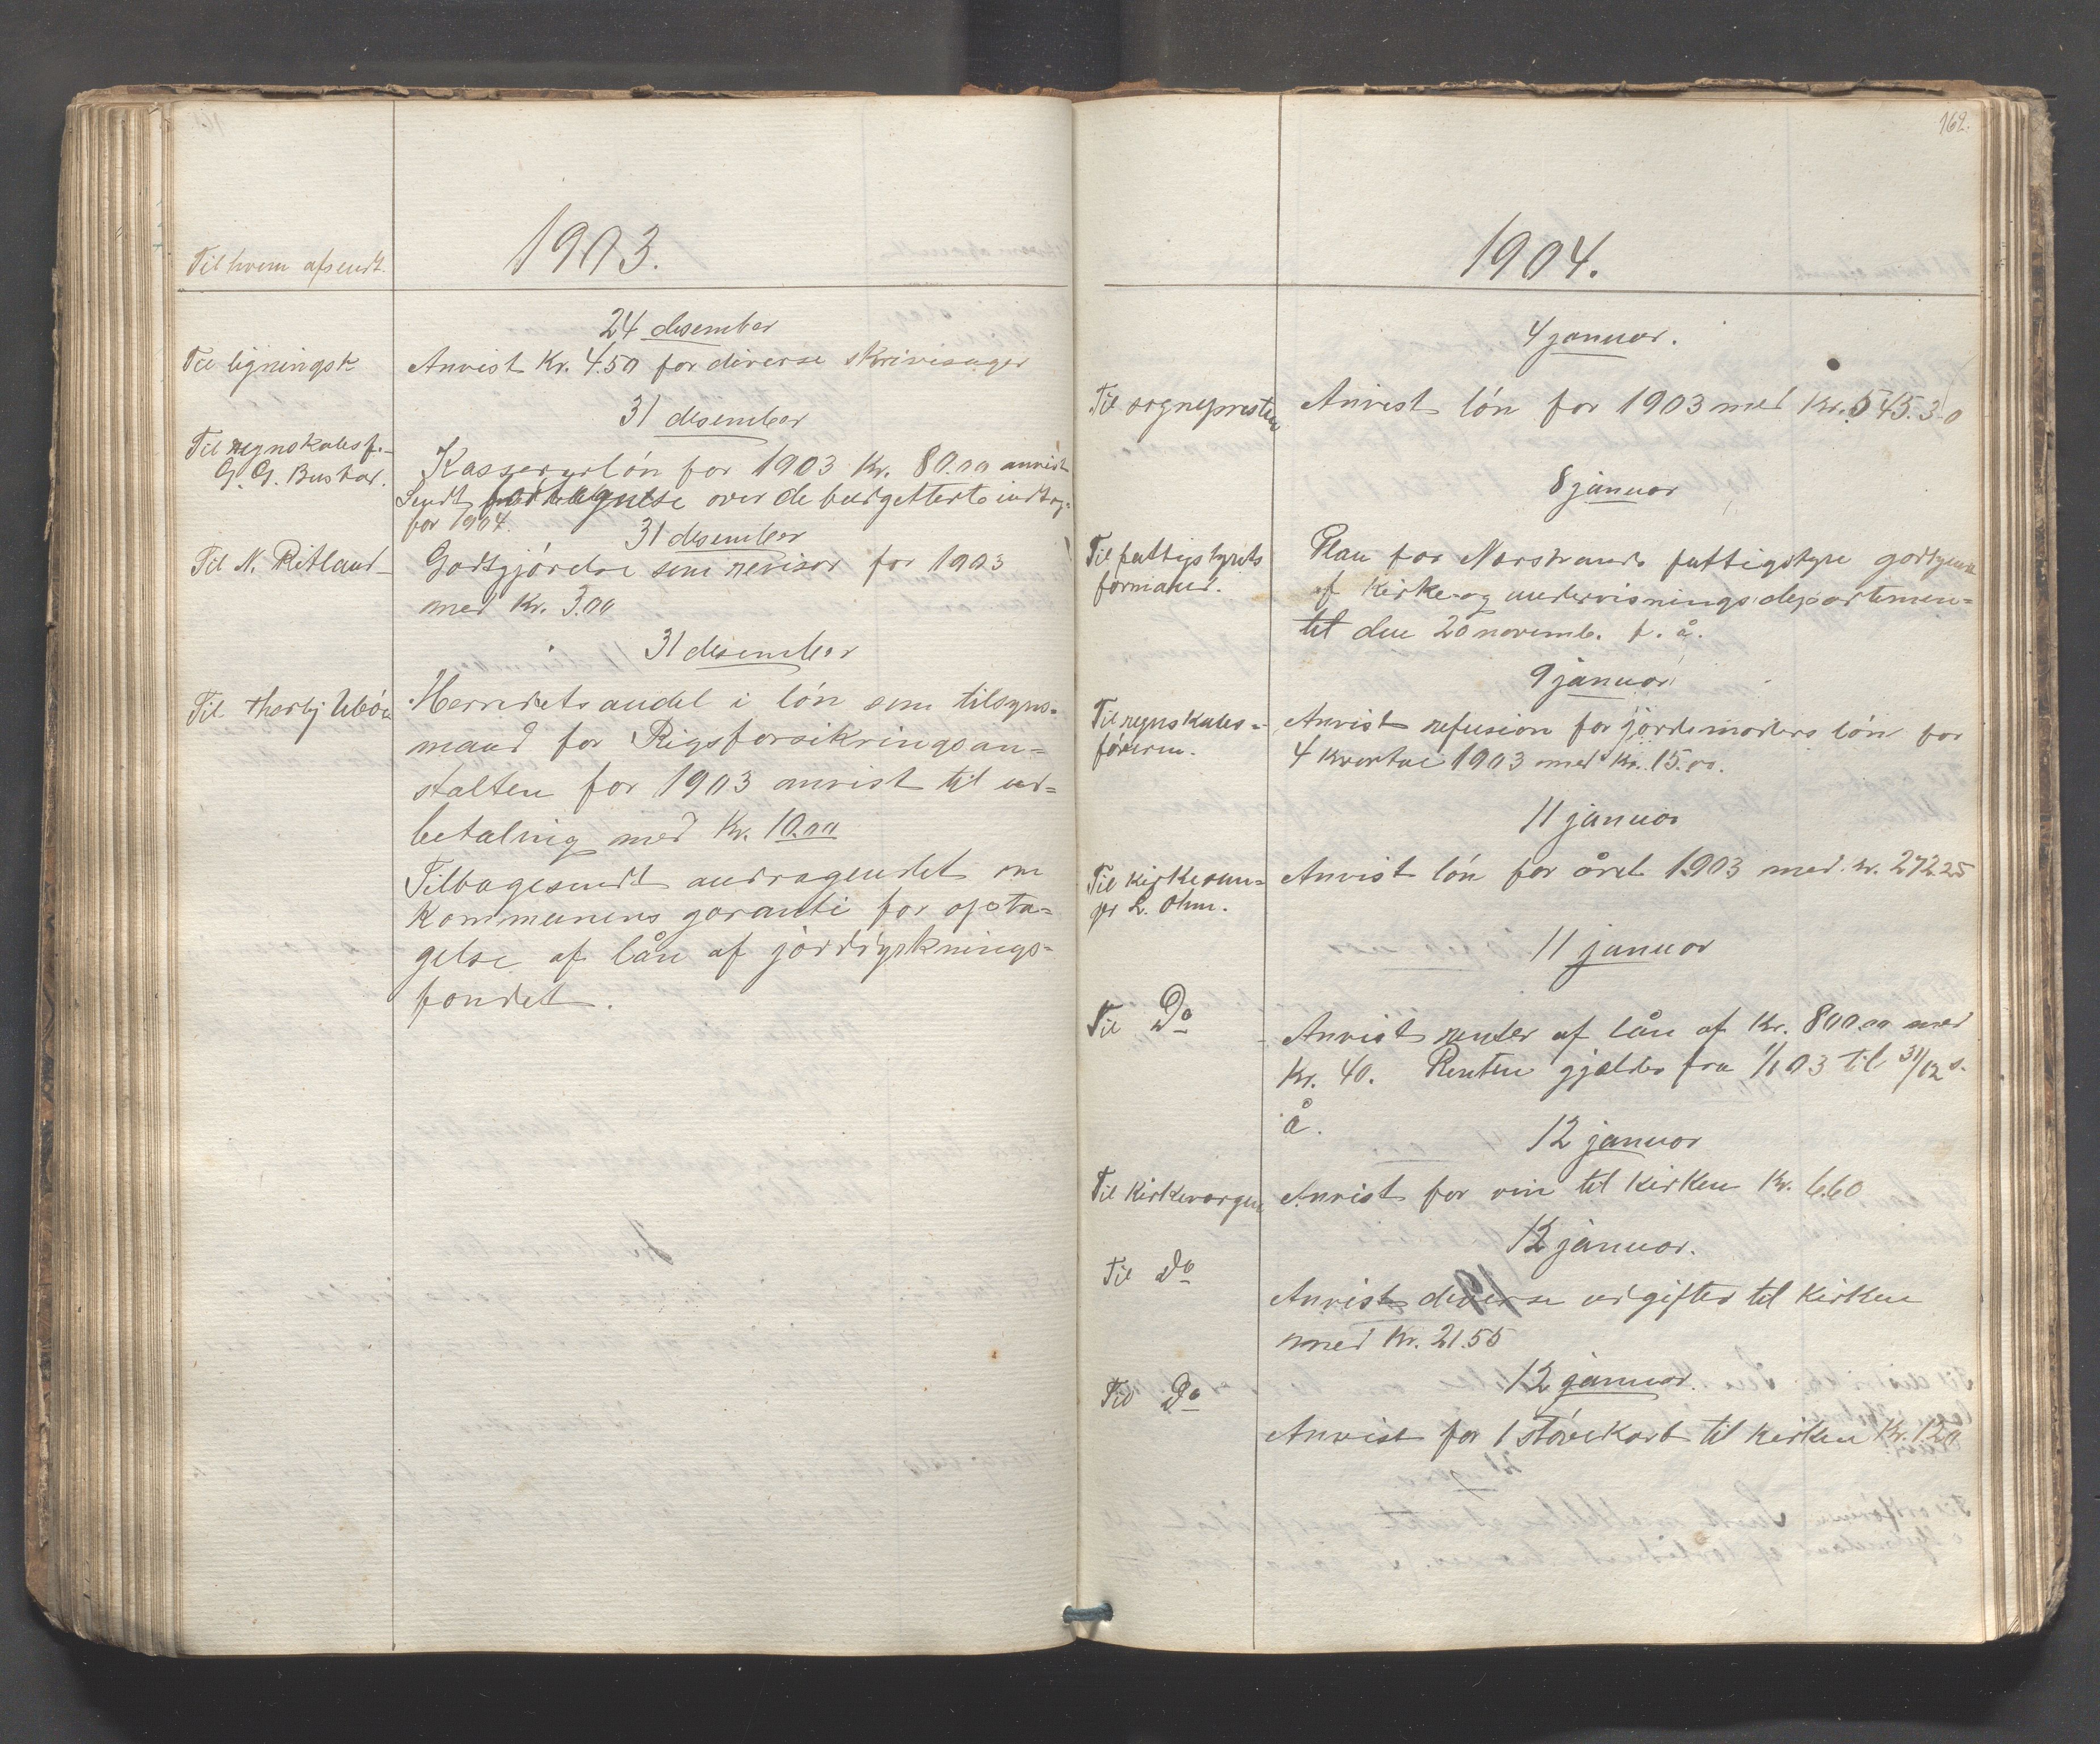 1903.
Til hvem afsendt.
24 desember
Til ligningsk. Anvist Kr. 4.50 for diverse skrivesager
31 desember
Til regnskabsf.
G. G. Bustad. Kassererløn for 1903 Kr. 80.00 anvist
Sendt fortegnelse over de budgetterte indtæg-
for 1904.
31 desember
Til N. Ritland Godtgjørelse som revisor for 1903
med Kr. 3.00
31 desember
Til Thorbj Herredets andel i løn som tilsyns-
mand for Rigsforsikringsan=
stalten for 1903 anvist til ud=
betaling med Kr. 10.00
Tilbagesendt andragendet om
kommunens garanti for opta=
gelse af lån af jorddyrknings=
fondet.
162.
1904.
4 januar.
Til sognepresten Anvist løn for 1903 med Kr. 545.30
8 januar
Til fattigstyrets
formand. Plan for Nerstrands fattigstyre godkjent
af Kirke- og undervisningsdepartemen=
tet den 20 novemb. f. å.
9 januar
Til regnskabs=
føreren. Anvist refusion for jordemoders løn for
4 kvartal 1903 med Kr. 15.00.
11 januar
Til kirkesan=
ger L. Ohm. Anvist løn for året 1903 med Kr. 272.25
11 januar
Til Do Anvist renter af lån af Kr. 800.00 med
Kr. 40. Renten gjælder fra 1/1 03 til 31/12 s.
å.
12 januar
Til Kirkevergen Anvist for vin til kirken Kr. 6.60
12 januar.
Til do
Anvist diverse udgifter til kirken
med Kr. 21.55
12 januar.
Til Do
Anvist for 1 støvekost til kirken Kr. 1.20